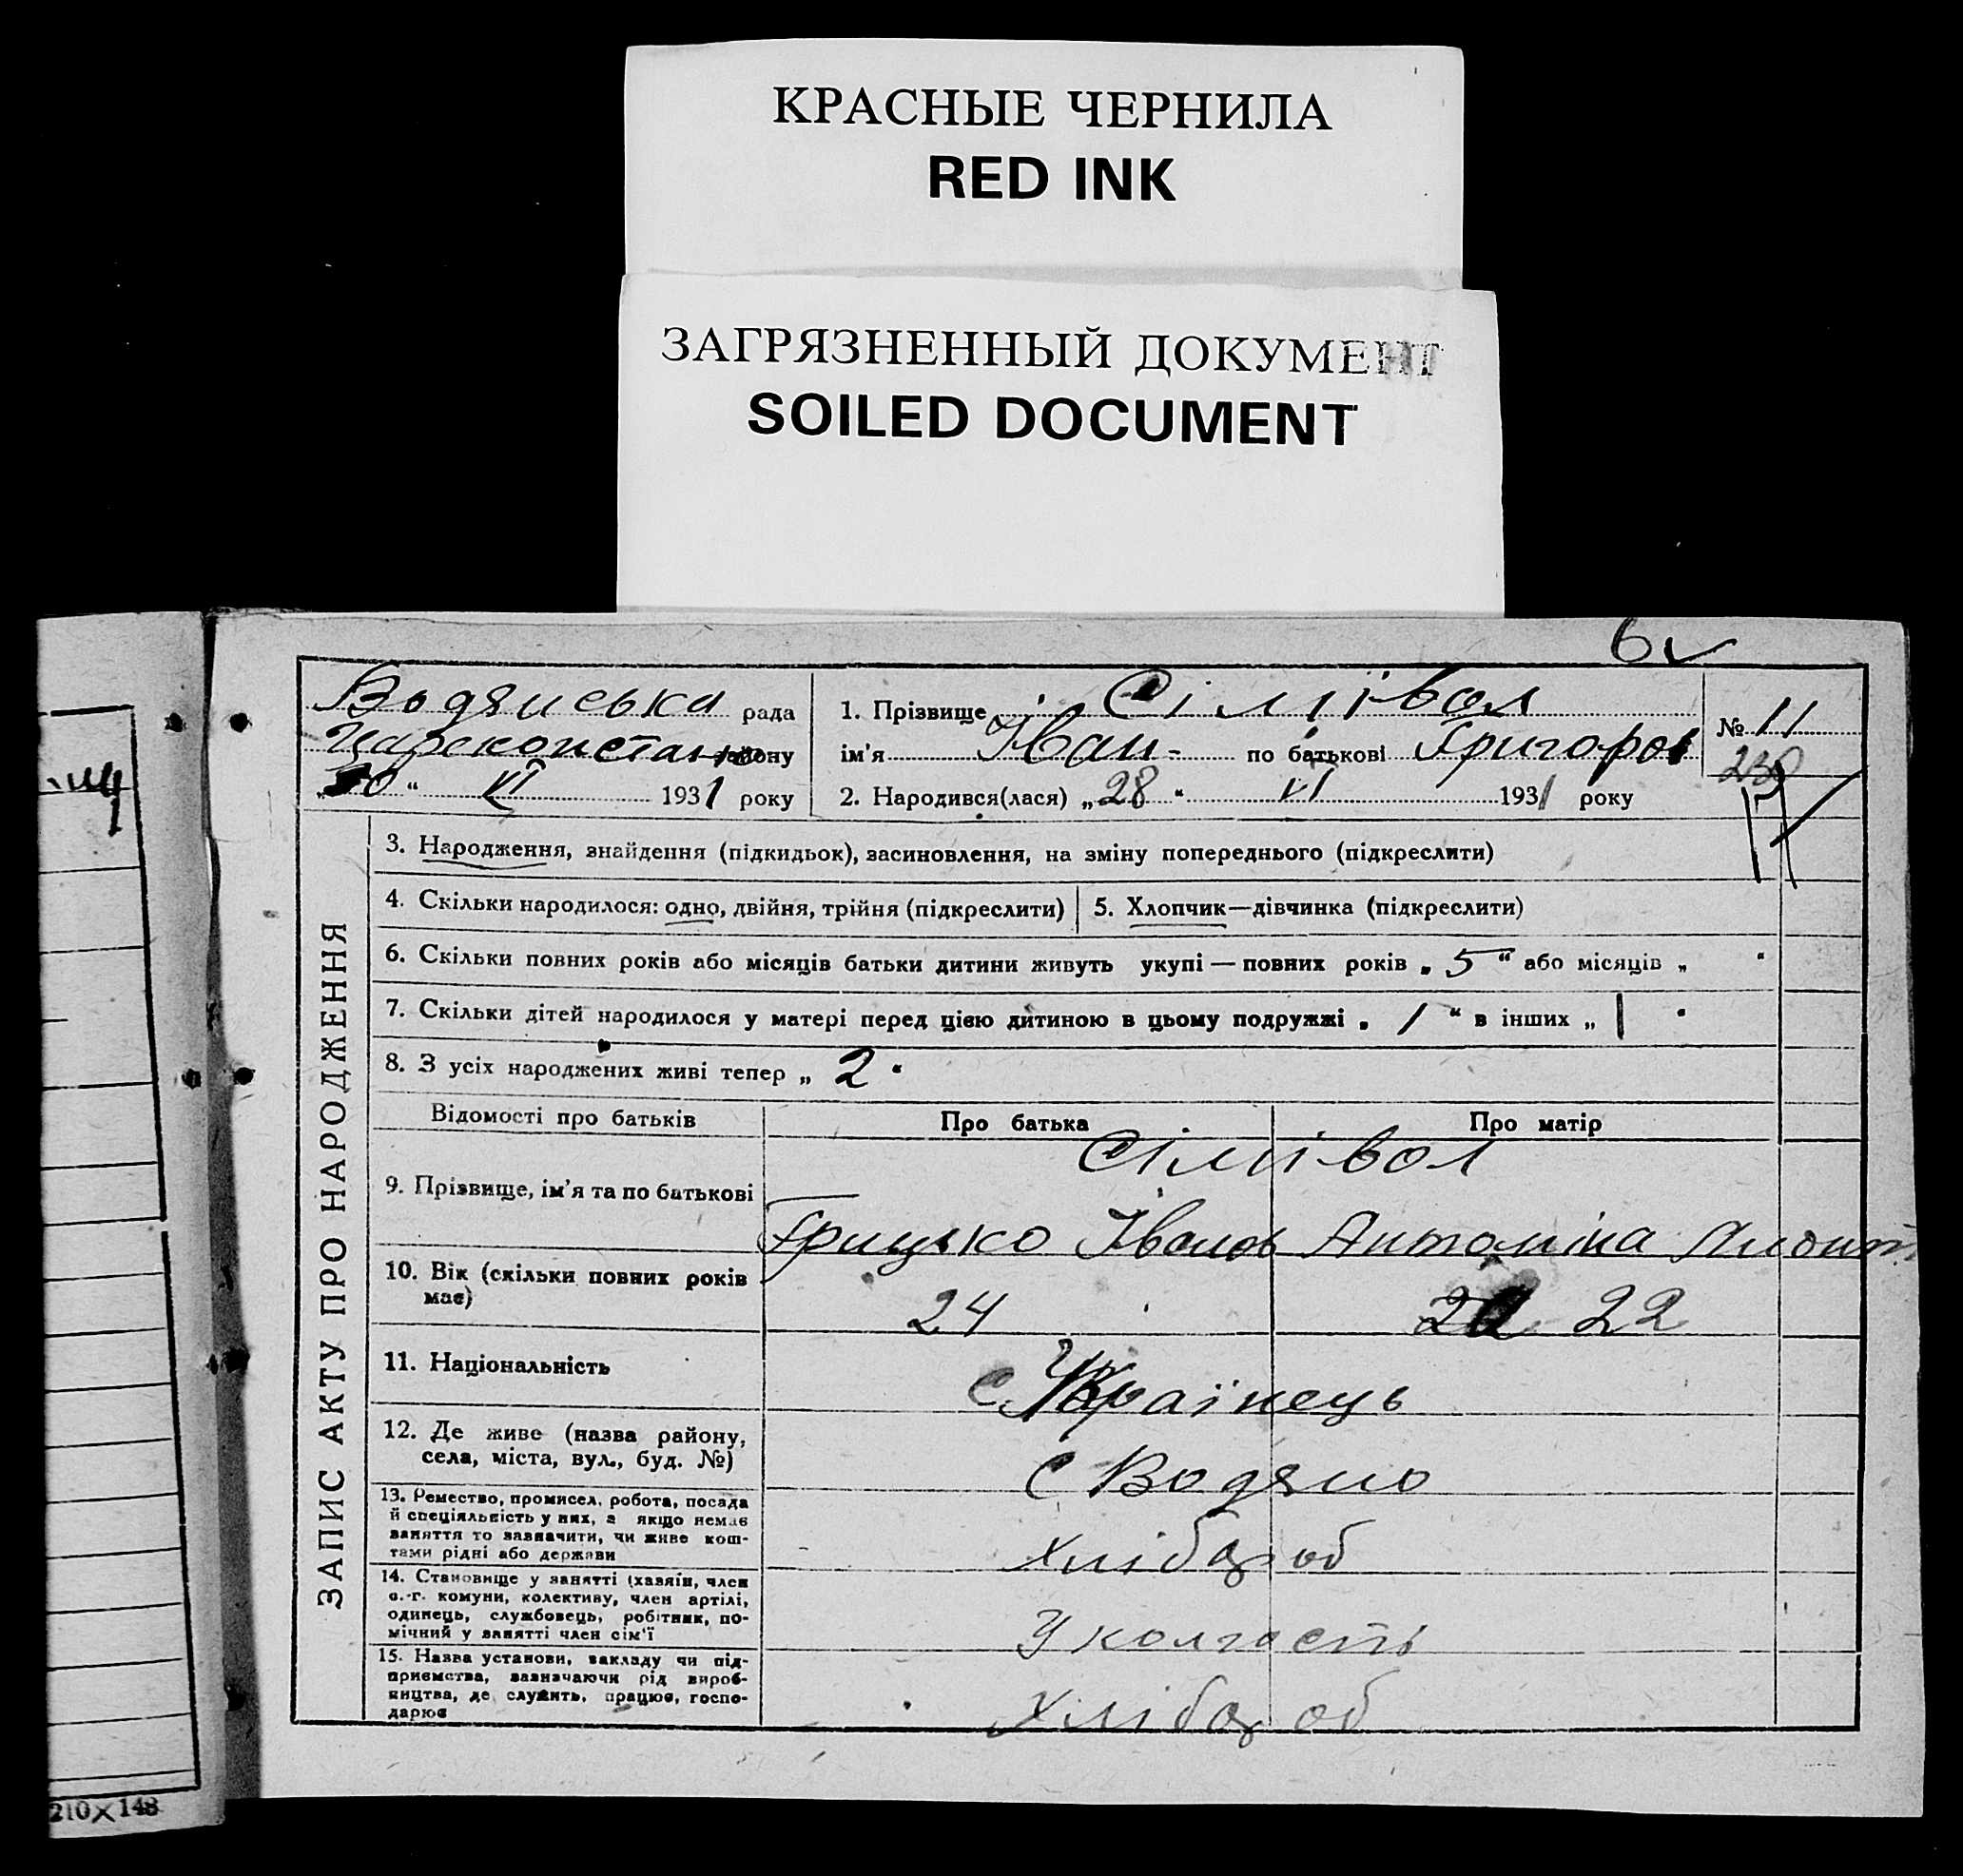 КРАСНЫЕ ЧЕРНИЛА
RED INK
ЗАГРЯЗНЕННЫЙ ДОКУМЕНТ
SOILED DOCUMENT
6
Водянська рада
Царекონстан району
„30“ VI 1931 року
1. Прізвище Сілівол
ім'я Іван по батькові Григоров
2. Народився(лася) „28“ VI 1931 року
№ 11
230
ЗАПИС АКТУ ПРО НАРОДЖЕННЯ
3. Народження, знайдення (підкидьок), засиновлення, на зміну попереднього (підкреслити)
4. Скільки народилося: одно, двійня, трійня (підкреслити)
5. Хлопчик—дівчинка (підкреслити)
6. Скільки повних років або місяців батьки дитини живуть укупі — повних років „5“ або місяців „ “
7. Скільки дітей народилося у матері перед цією дитиною в цьому подружжі „1“ в інших „1“
8. З усіх народжених живі тепер „2“
Відомості про батьків Про батька Про матір
9. Прізвище, ім'я та по батькові
Сілівол
Грицько Іванов Антоніна
10. Вік (скільки повних років має)
24 22
11. Національність
Українець
12. Де живе (назва району, села, міста, вул., буд. №)
С Водяно
13. Ремество, промисел, робота, посада
й спеціяльність у них, а якщо немає
заняття то зазначити, чи живе кош-
тами рідні або держави
Хлібороб
14. Становище у занятті (хазяїн, член
с.-г. комуни, колективу, член артілі,
одинець, службовець, робітник, по-
мічний у занятті член сім'ї
У колгость
15. Назва установи, закладу чи під-
приємства, зазначаючи рід вироб-
ництва, де служить, працює, госпо-
дарює
Хлібороб
210×148